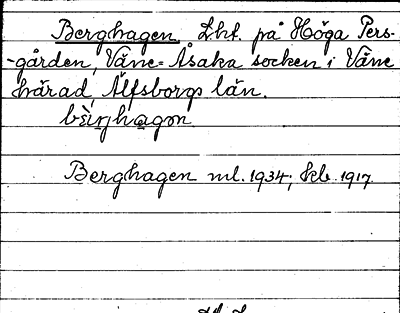 Berghagen, Lht. på Höga Pers-
-gården, Väne-Åsaka socken i Väne
härad, Älfsborgs län.
Berghagen ml. 1934; kb 1917